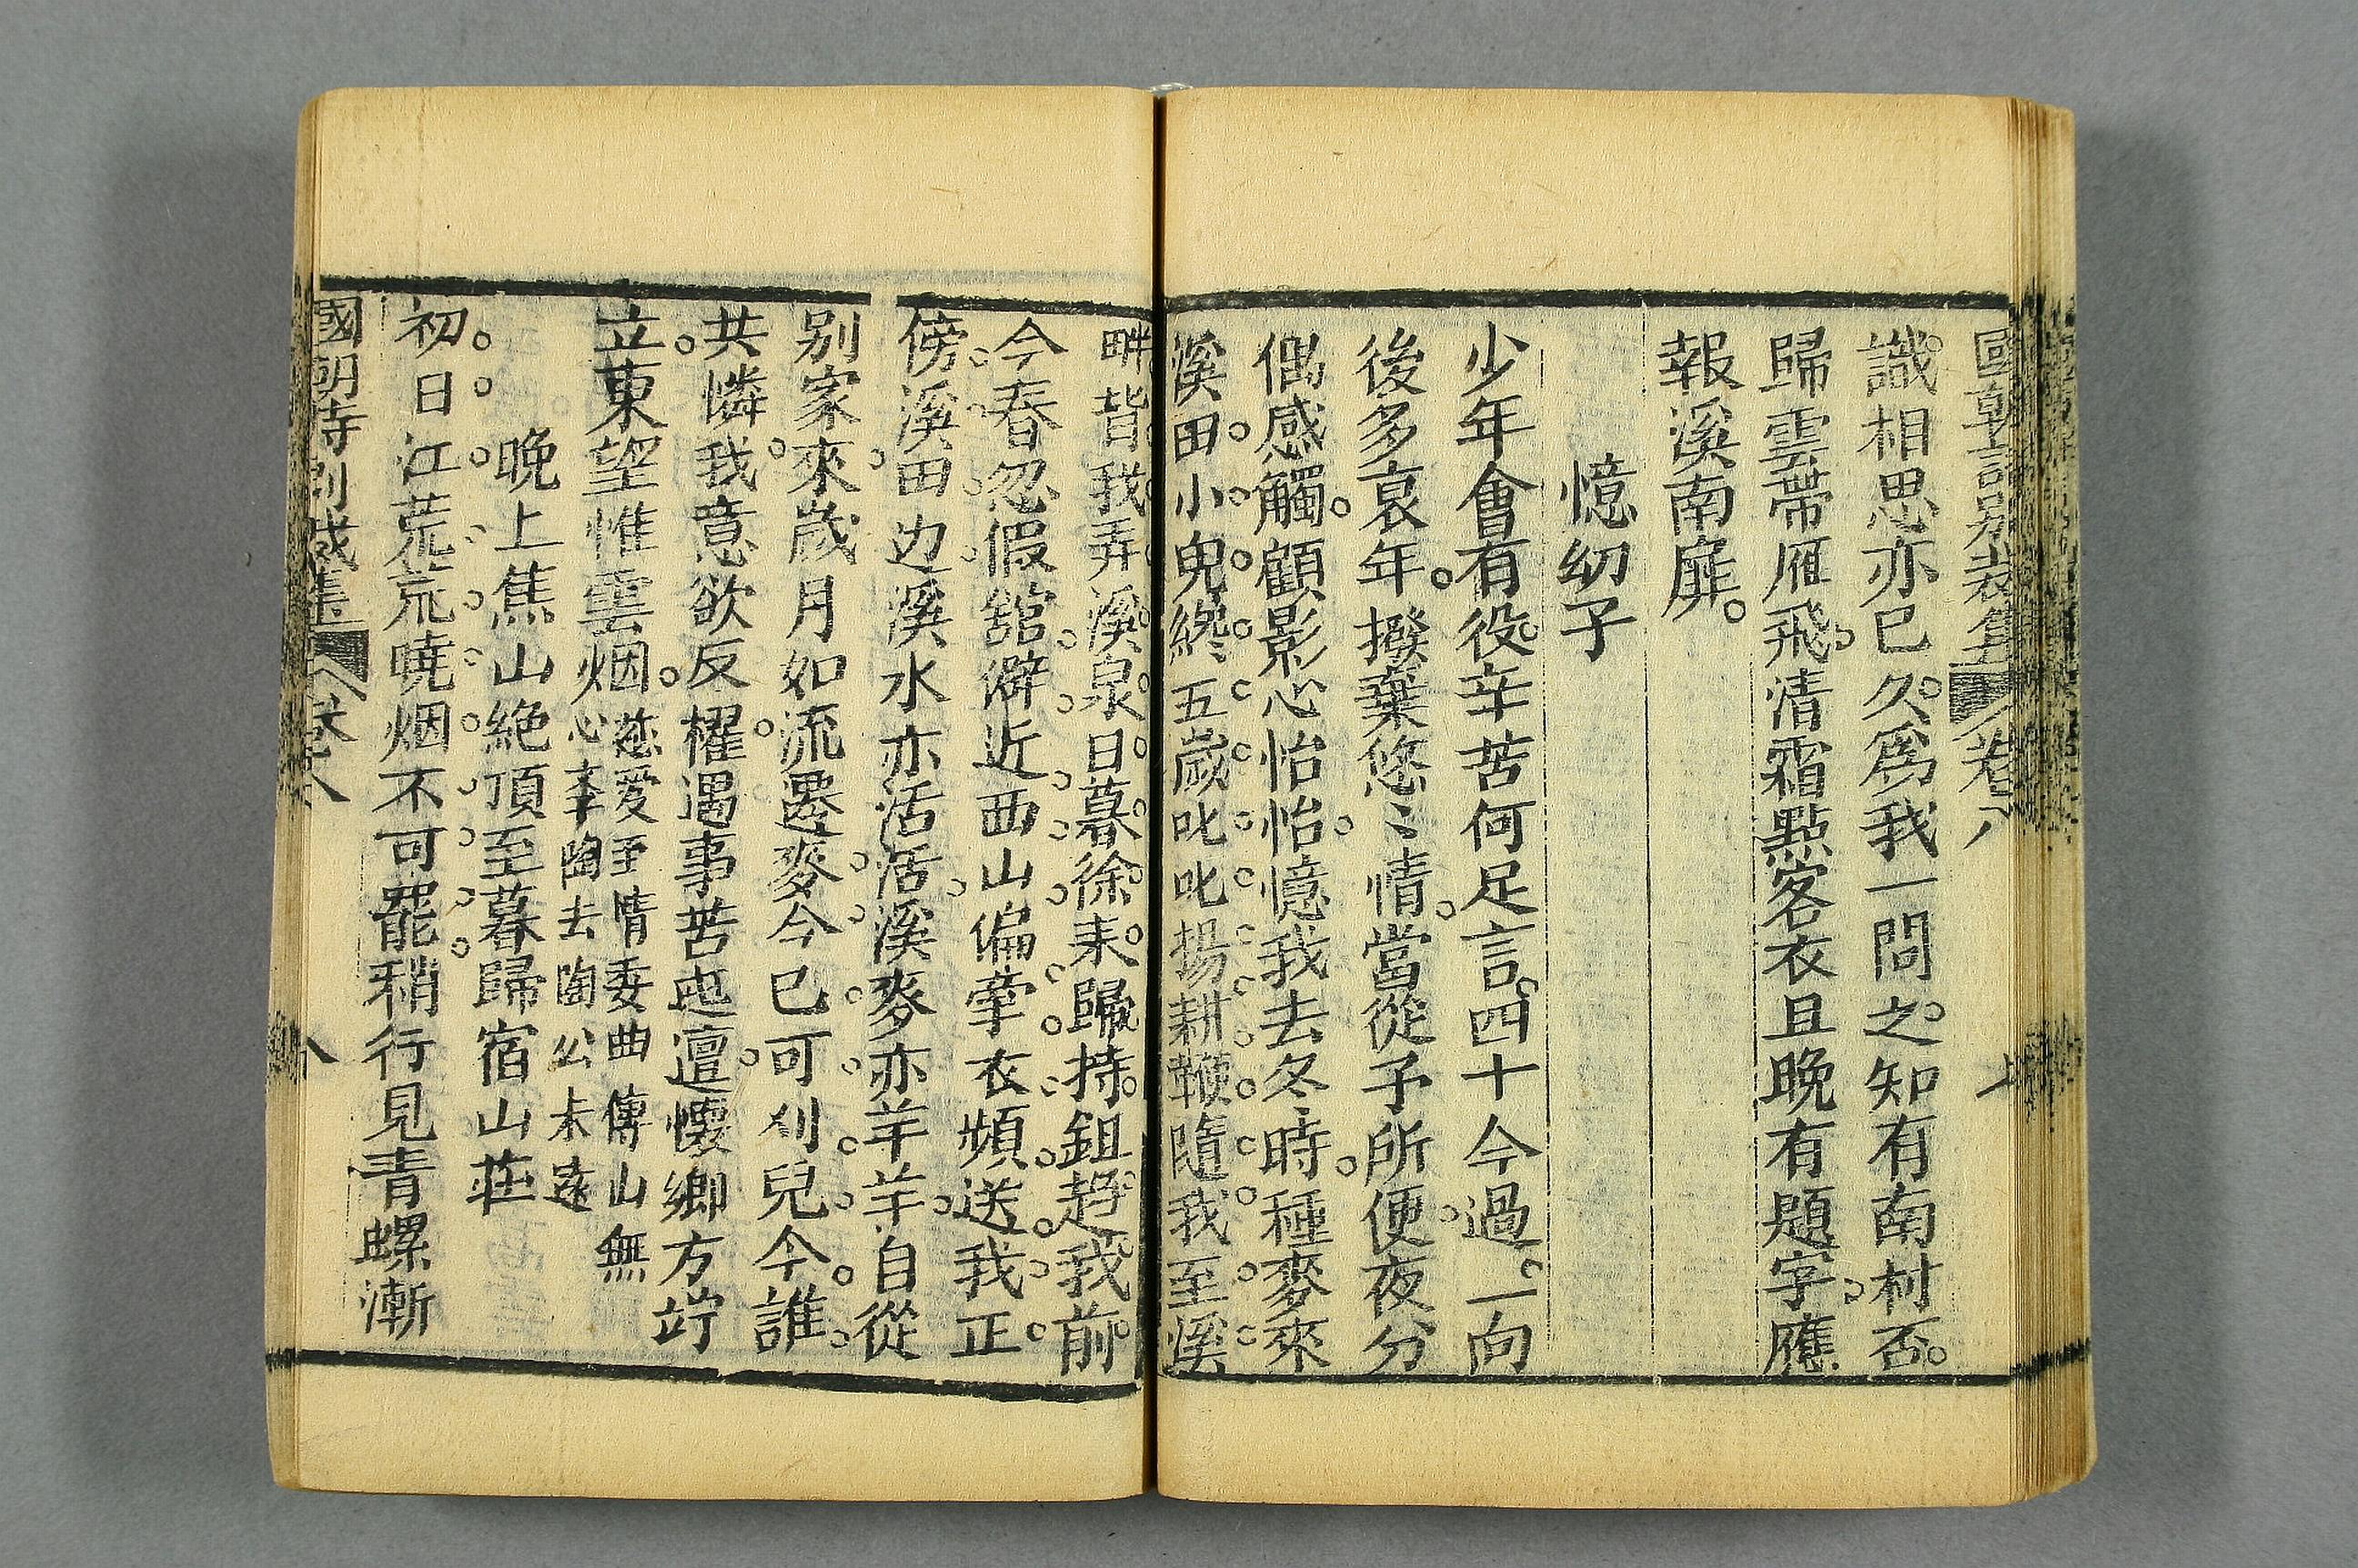 國朝詩别裁集 卷八 七
識相思亦已久。爲我一問之。知有南村否。
歸雲帶雁飛。清霜點客衣且晚有題字。應
報溪南扉。
憶幼子
少年會有役。辛苦何足言。四十今過。一向
後多哀年。撥棄悠〻情。當從予所便。夜分
偶感觸。顧影心怡怡。憶我去冬時。種麥來
溪田。小兒纔五歲叱叱揚耕鞭。隨我至溪
畔。背我弄溪泉。日暮徐耒歸。持鉏趋我前。
今春忽假舘。僻近西山偏。牽衣頻送我。正
傍溪田边。溪水亦活活。溪麥亦羊羊。自從
别家來。歲月如流遷。麥今已可刈。兒今誰
共憐。我意欲反櫂。遇事苦迍邅。懷鄉方竚
立。東望惟雲烟。慈爱至情委曲傳山無
心李陶去陶公未遠
晚上焦山絶頂至暮歸宿山莊
初日江荒荒。曉烟不可罷。稍行見青螺漸
國朝詩别裁集 卷八 八